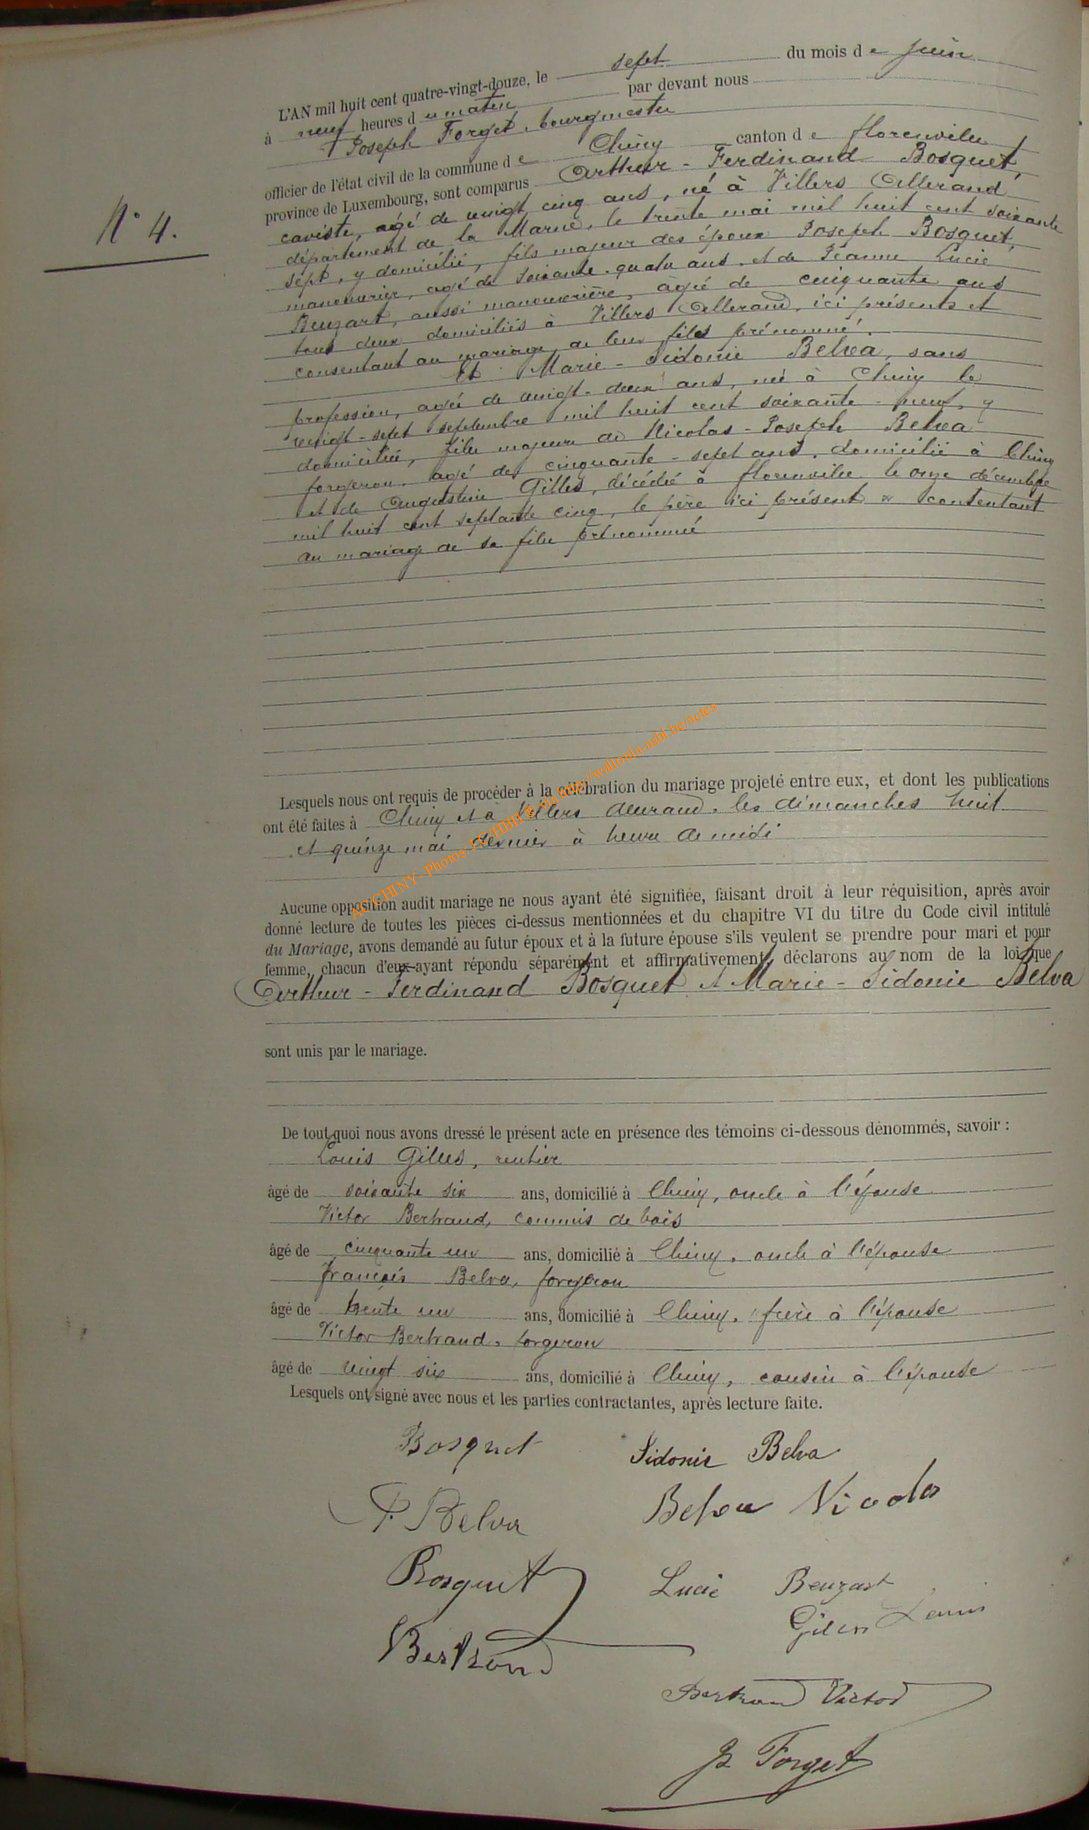 L'AN mil huit cent quatre-vingt-douze, le sept du mois de juin
à neuf heures du matin par devant nous
Joseph Forget, bourgmestre
officier de l'état civil de la commune de Chiny canton de florenville
province de Luxembourg, sont comparus Arthur - Ferdinand Bosquet,
N° 4.
caviste, agé de vingt cinq ans, né à Villers Allerand
département de la Marne, le trente mai mil huit cent soixante
sept, y domicilié, fils majeur des époux Joseph Bosquet,
manouvrier, agé de soixante-quatre ans et de Jeanne Lucie
Beuzart, aussi manouvrière, agée de cinquante ans
tous deux domiciliés à Villers Allerand, ici présents et
consentant au mariage de leur fils prénommé.
Et Marie - Sidonie Belva, sans
profession, agée de vingt-deux ans, née à Chiny le
vingt-sept septembre mil huit cent soixante-neuf, y
domiciliée, fille majeure de Nicolas-Joseph Belva
forgeron, agé de cinquante-sept ans, domicilié à Chiny
et de Augustine Gilles, décédée à florenville le onze décembre
mil huit cent septante cinq, le père ici présent et contentant
au mariage de sa fille prénommée
Lesquels nous ont requis de procéder à la célébration du mariage projeté entre eux, et dont les publications
ont été faites à Chiny et à Villers Allerand, les dimanches huit
et quinze mai dernier à heure de midi
Aucune opposition audit mariage ne nous ayant été signifiée, faisant droit à leur réquisition, après avoir
donné lecture de toutes les pièces ci-dessus mentionnées et du chapitre VI du titre du Code civil intitulé
du Mariage, avons demandé au futur époux et à la future épouse s'ils veulent se prendre pour mari et pour
femme, chacun d'eux ayant répondu séparément et affirmativement, déclarons au nom de la loi que
Arthur - Ferdinand Bosquet et Marie - Sidonie Belva
sont unis par le mariage.
De tout quoi nous avons dressé le présent acte en présence des témoins ci-dessous dénommés, savoir :
Louis Gilles, rentier
âgé de soixante six ans, domicilié à Chiny, oncle à l'épouse
Victor Bertrand, commis de bois
âgé de cinquante un ans, domicilié à Chiny, oncle à l'épouse
François Belva, forgeron
âgé de trente un ans, domicilié à Chiny, frère à l'épouse
Victor Bertrand, forgeron
âgé de vingt six ans, domicilié à Chiny, cousin à l'épouse
Lesquels ont signé avec nous et les parties contractantes, après lecture faite.
Bosquet Sidonie Belva
Belva Belva Nicolas
Bosquet Lucie Beuzart
Gilles Louis
Bertrand
Bertrand Victor
Js Forget